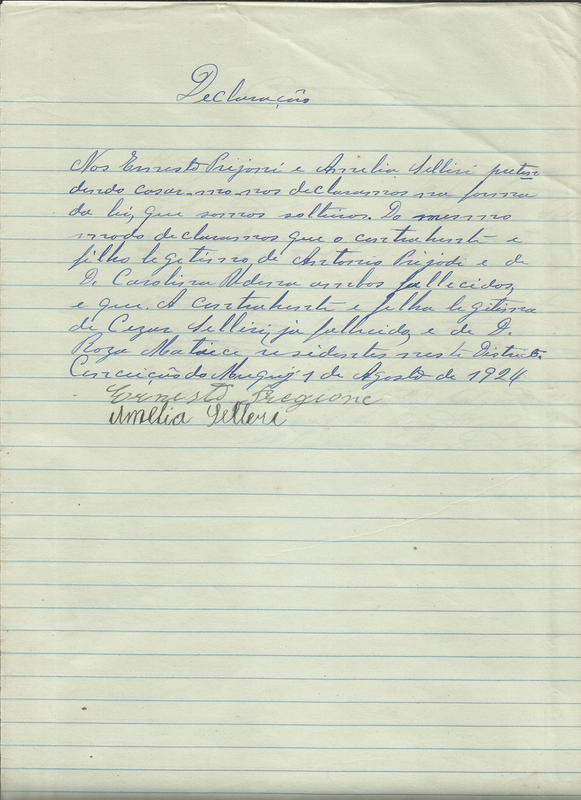 Declaração
Nos Ernesto Prijoni e Amelia Selleri preten
dendo casar-mo-nos declaramos na forma
da lei, que somos solteiros. Do mesmo
modo declaramos que o contrahente e
filho legitimo de Antonio Prijodi e de
D. Carolina ambos fallecidos
e que. A contrahente e filha legitima
de Cezar Selleri, ja fallecido, e de D.
Roza Mataece, residentes neste Districto.
Conceição do Muquy 1 de Agosto de 1924
Ernesto Pregione
Amelia Selleri